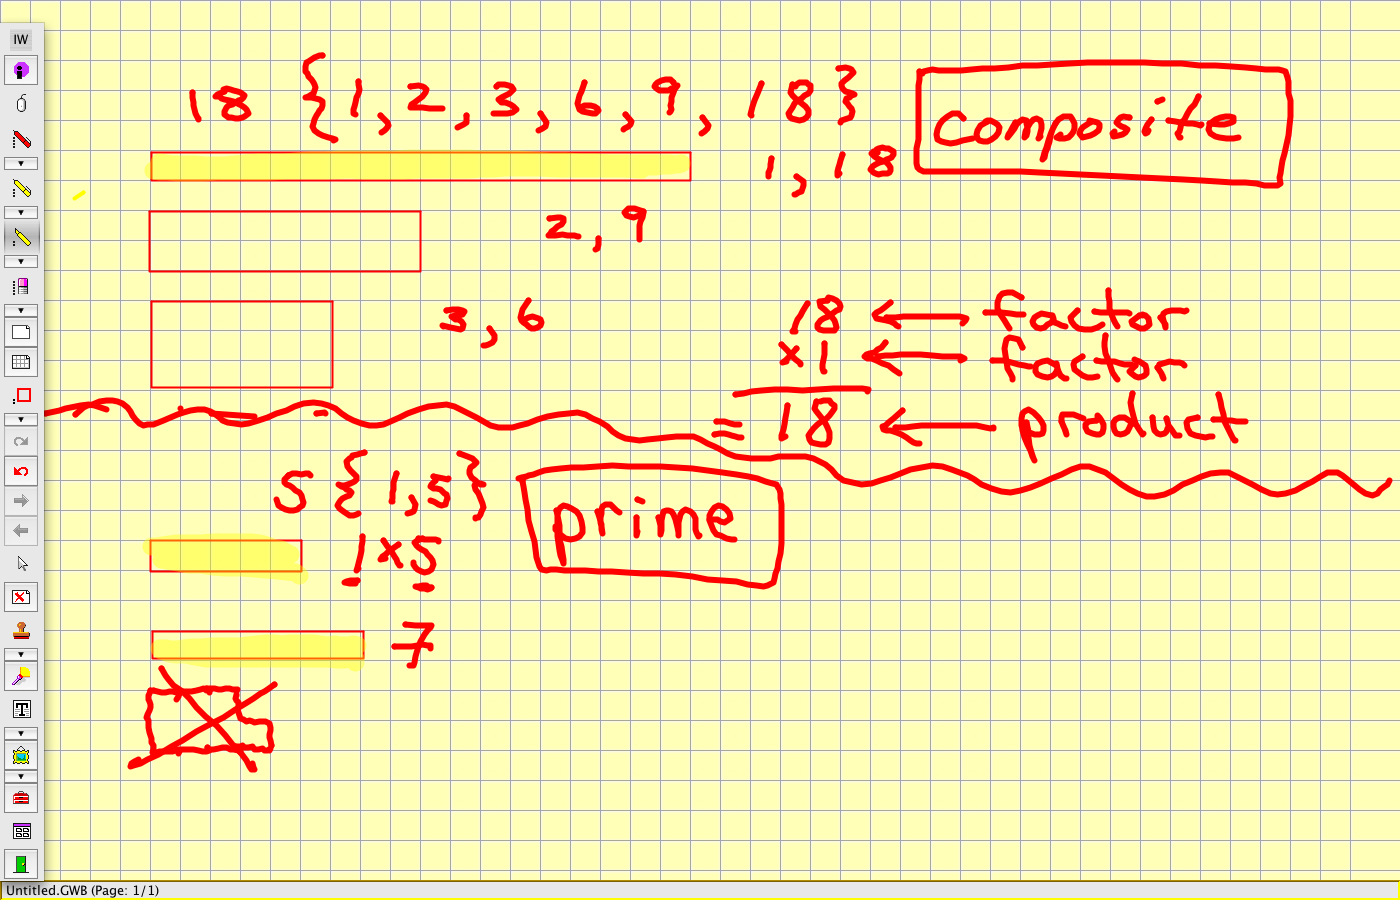 IW
18 {1, 2, 3, 6, 9, 18}
composite
1, 18
2, 9
3, 6
18 ← factor
×1 ← factor
= 18 ← product
5 {1, 5}
prime
1×5
7
T
Untitled.GWB (Page: 1/1)